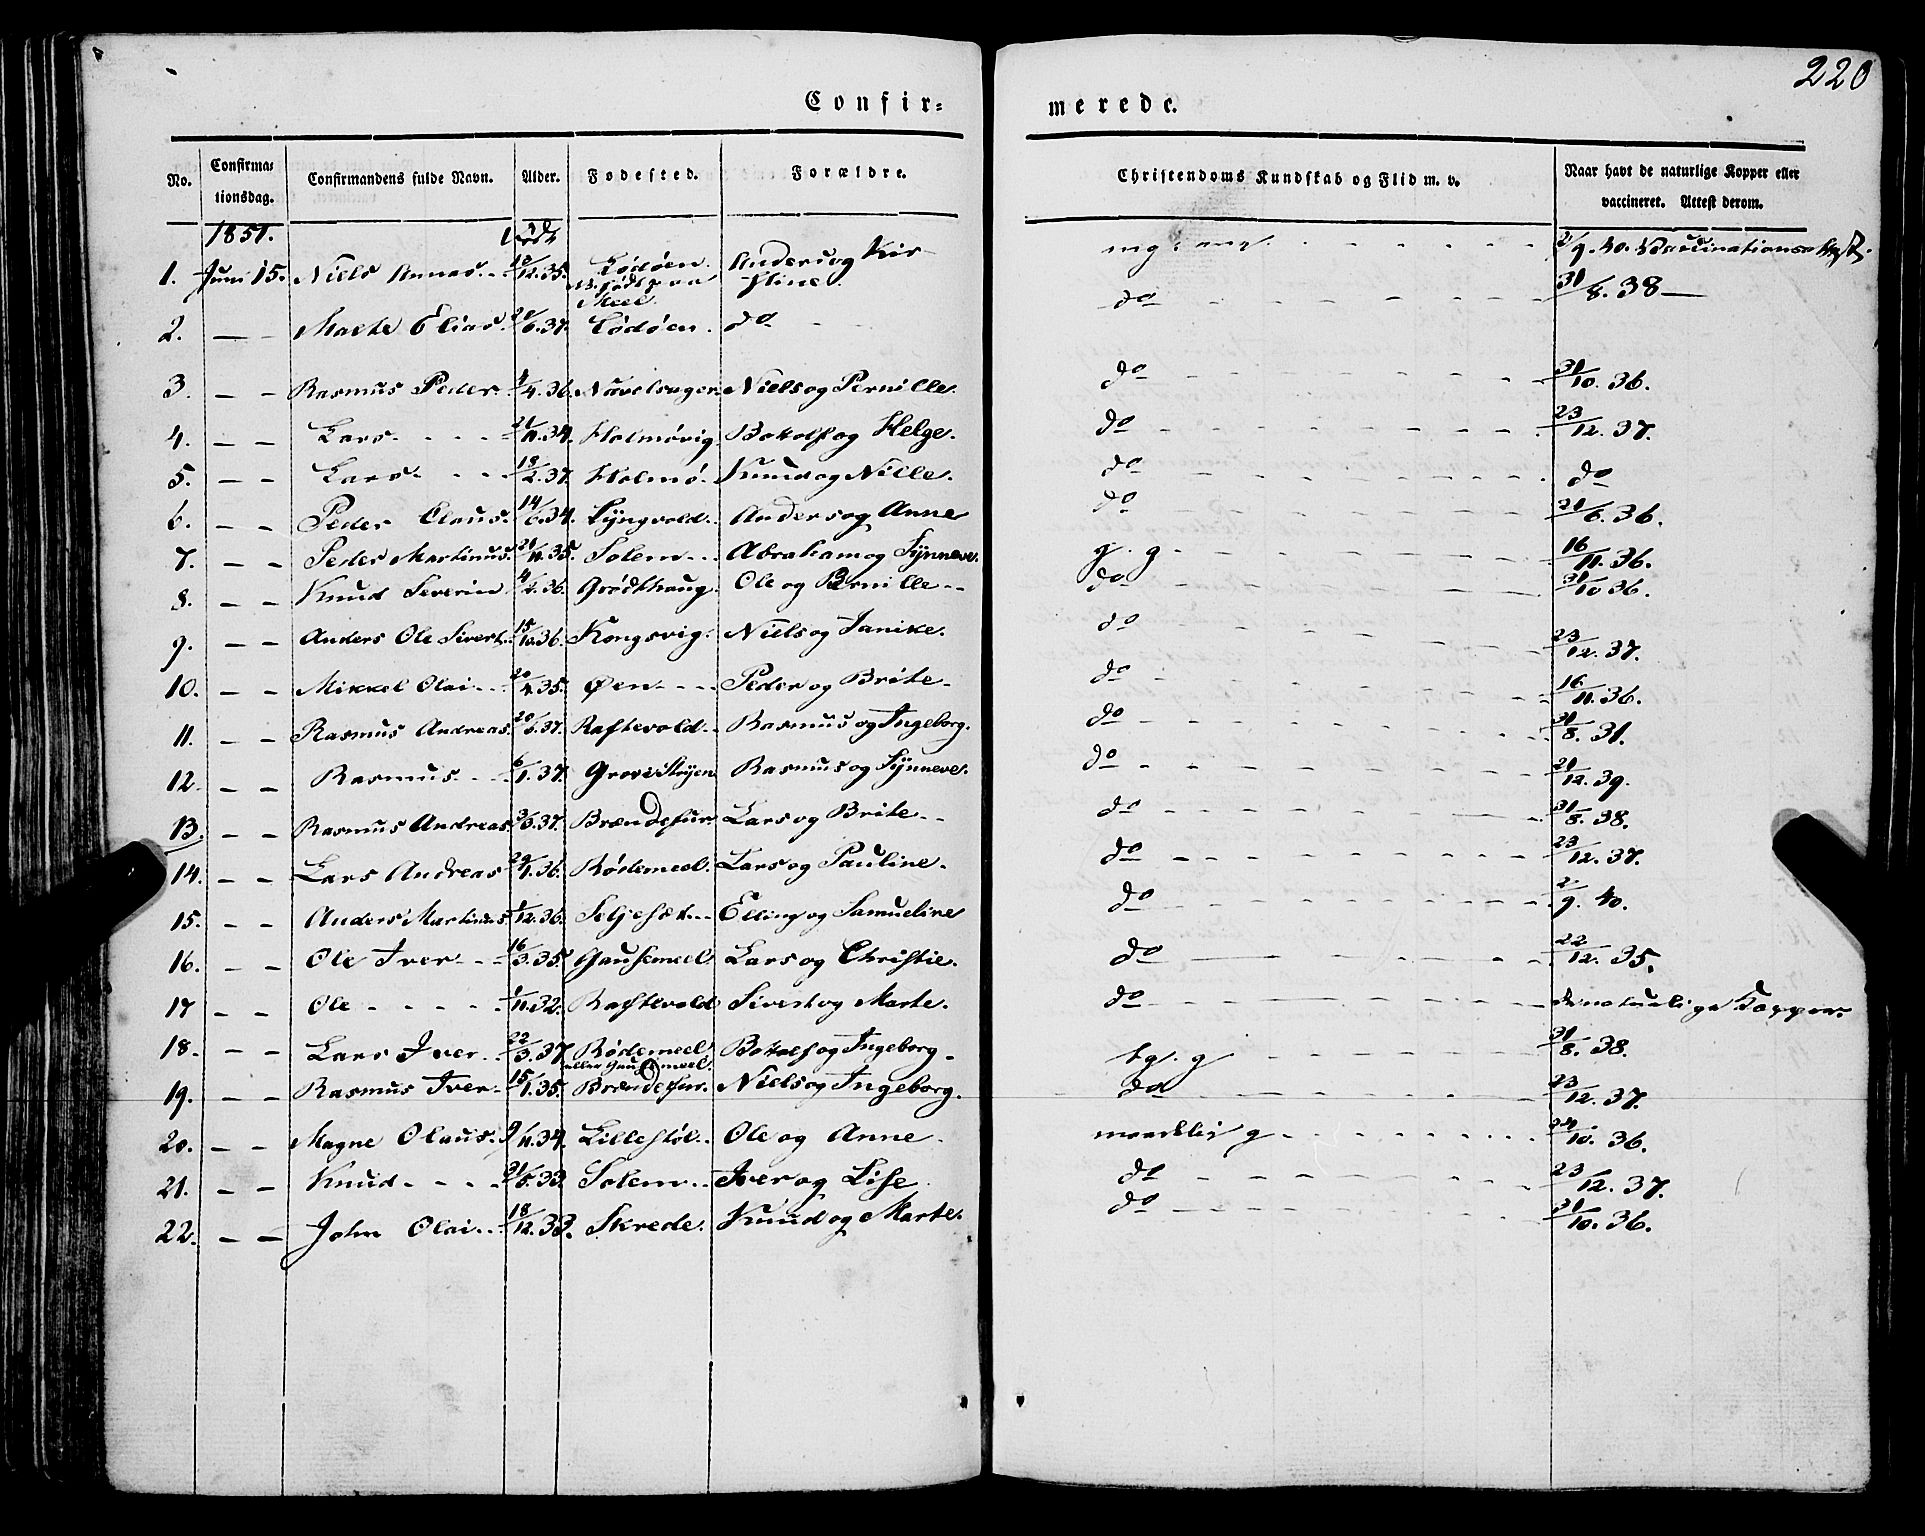 220
Confir= merede.
No. Confirmationsdag. Confirmandens fulde Navn. Alder. Fødested. Forældre. Christendoms Kundskab og Flid m. v. Naar havt de naturlige Kopper eller vaccineret. Attest derom.
1851. Født
1. Juni 15. Niels 12.35. Lødøen Anders og Kirstine. mg. 2/9.40. Vaccinationsattest.
Meel.
2. — — Marte Elias. 21/6.37. Lødøen. do do 31/8.38 —
3. — — Rasmus Peder 4.36. Navelsager Niels og Pernille. do 31/10.36.
4. — — Lars 21/11.34. Holmøvig Botolf og Helge. do 23/12.37.
5. — — Lars 18/2.37. Holmø. Knud og Nille. do do
6. — — Peder Claus. 14/6.34. Lÿngvold. Anders og Anne do 21/6.36.
7. — — Peder Martinus. 21/11.35. Solem Abraham og Sÿnneve. g. g 16/11.36.
8. — — Knud Severin 4/2.36. Grødthaug. Ole og Pernille do 31/10 36.
9. — — Anders Ole Sivert. 15/10.36. Kongsvig. Niels og Janike. do 23/12.37.
10. — — Mikkel Olai 20/4.35. Øen Peder og Brite do 16/11.36.
11. — — Rasmus Andreas. 20/5.37. Raftevold Rasmus og Ingeborg. do 31/8.31.
12. — — Rasmus 6/1.37. Grove Støÿen Rasmus og Sÿnneve. do 21/12.39.
13. — — Rasmus Andreas 37. Brændefur Lars og Brite do 31/8.38.
14. — — Lars Andreas 29/1.36. Rødemeel. Lars og Pauline. do 23/12.37.
15. — — Anders Martinus 1/12.36. Seljesæt Elling og Samueline do 2/9.40.
16. — — Ole Iver 16/3.35 Gausemeel. Lars og Christie. do 22/12.35.
17 — — Ole 1/11.32. Raftevold Sivert og Marte. do de naturlige Kopper.
18. — — Lars Iver 22/3.37 Rødemeel Botolf og Ingeborg tg. g 31/8.38.
eller Gausemeel.
19. — — Rasmus Iver 15/1.35. Brændefur. Niels og Ingeborg. do 23/12.37.
20. — — Magne Olaus. 9/11.34. Lillestøl. Ole og Anne maadelig g 24/10.36.
21. — — Knud 21/5.33. Solem Iver og Lise do 23/12.37.
22. — — John Olai 18/12.33. Skrede. Knud og Marte. do 31/10.36.